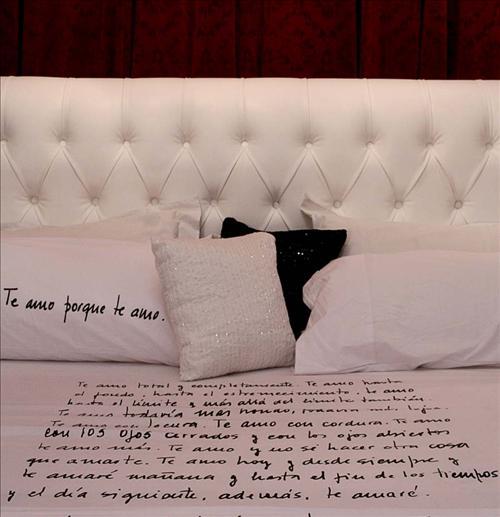 Te amo porque te amo.
Te amo total y completamente. Te amo hasta
el fondo, hasta el estremecimiento, te amo
hasta el límite y más allá del límite también.
Te amo todavía más hondo, todavía más lejos.
Te amo con locura. Te amo con cordura. Te amo
con los ojos cerrados y con los ojos abiertos
te amo más. Te amo y no sé hacer otra cosa
que amarte. Te amo hoy y desde siempre y
te amaré mañana y hasta el fin de los tiempos
y el día siguiente, además, te amaré.